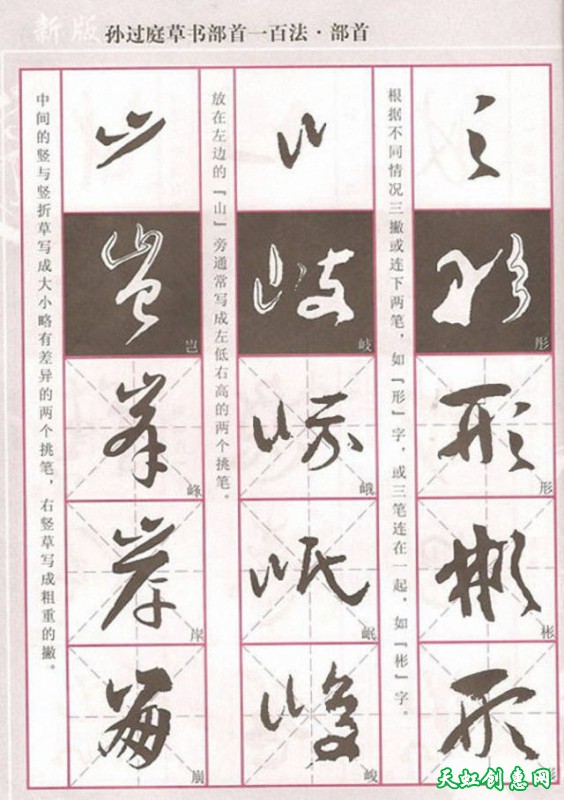 新版 孙过庭草书部首一百法·部首
根据不同情况三撇或连下两笔，如『形』字，或三笔连在一起，如『彬』字。
彤
形
彬
放在左边的『山』旁通常写成左低右高的两个挑笔。
岐
峨
岷
峻
中间的竖与竖折草写成大小略有差异的两个挑笔，右竖草写成粗重的撇。
岂
峰
岸
崩
天虹创惠网